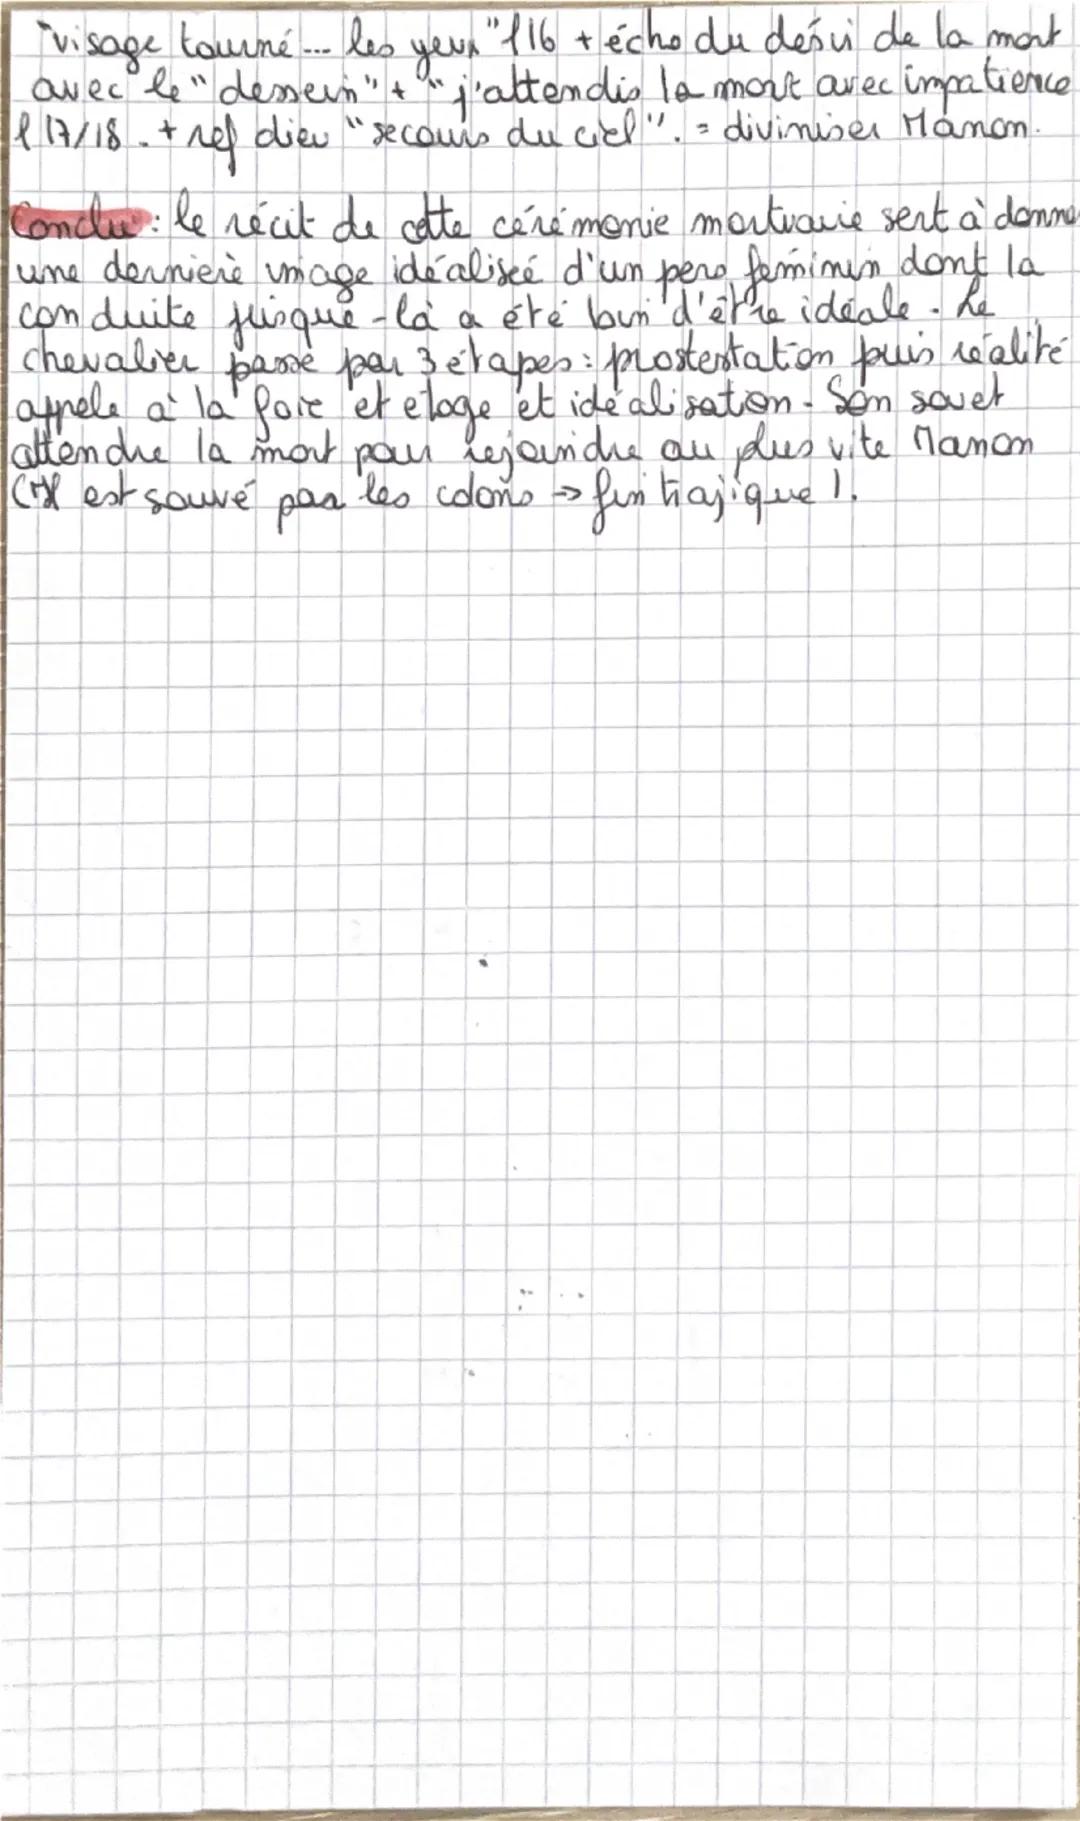 "visage tourné... les yeux" l16 + écho du désui de la mort
avec le "dessein" + "j'attendis la mort avec impatience
l 17/18. + ref dieu "secours du ciel". = diviniser Manon.
Conclu : le récit de cette cérémonie mortuaire sert à donner
une dernière image idéalisée d'un perso féminin dont la
conduite jusque-là a été loin d'être idéale. Le
chevalier passe par 3 étapes : prosternation puis réalité
appele à la foie et eloge et idéalisation. Son souet
attendre la mort pour rejoindre au plus vite Manon
est sauvé par les colons → fin trajique).